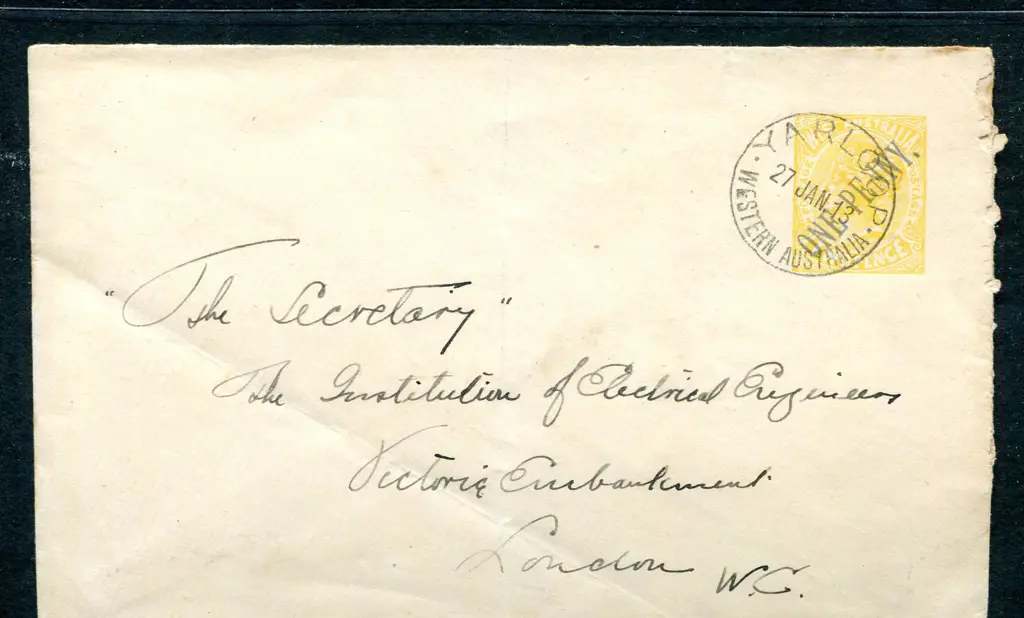 YARLOOP
27 JAN.13
·WESTERN AUSTRALIA·
AUSTRALIA
ONE PENNY.
PENCE
"The Secretary"
The Institution of Electrical Engineers
Victoria Embankment
London W.C.